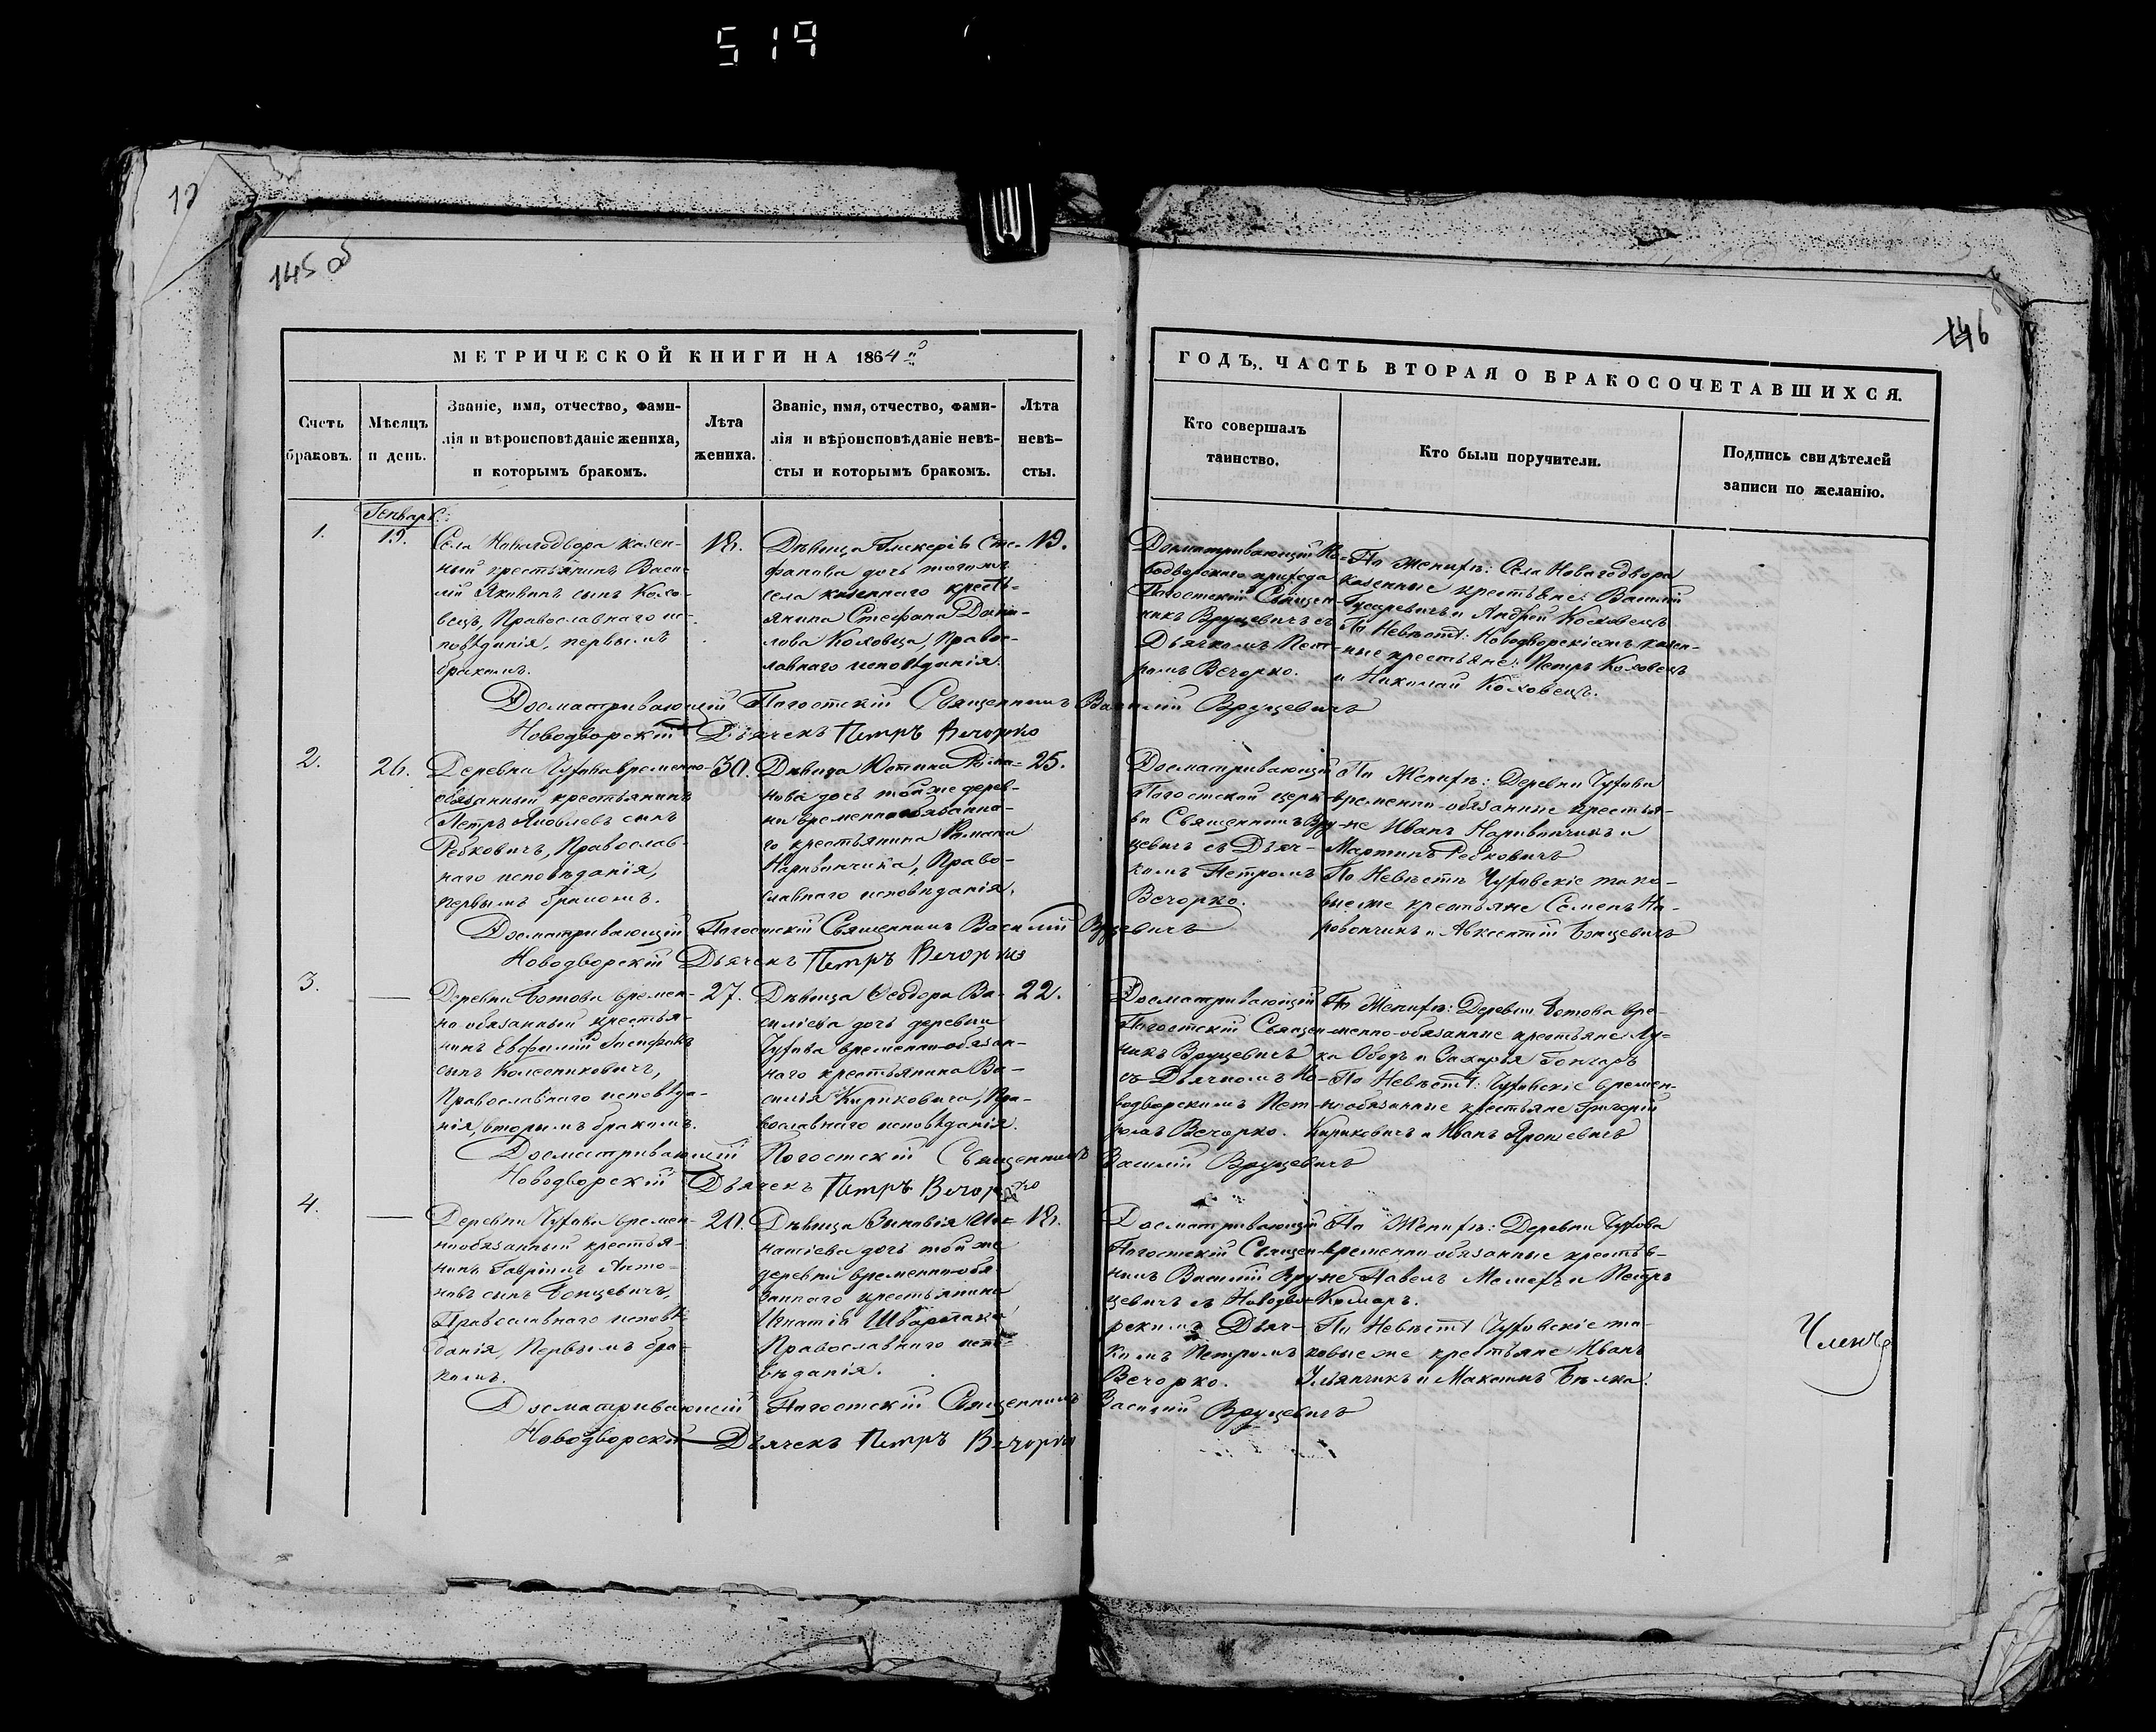 519
12
145 об
146
МЕТРИЧЕСКОЙ КНИГИ НА 1864й
Счетъ браковъ.
Мѣсяцъ и день.
Званіе, имя, отчество, фами-
лія и вѣроисповѣданіе жениха,
и которымъ бракомъ.
Лѣта
жениха.
Званіе, имя, отчество, фами-
лія и вѣроисповѣданіе невѣ-
сты и которымъ бракомъ.
Лѣта
невѣ-
сты.
ГОДЪ, ЧАСТЬ ВТОРАЯ О БРАКОСОЧЕТАВШИХСЯ.
Кто совершалъ
таинство.
Кто были поручители.
Подпись свидѣтелей
записи по желанію.
Генварь
1.
19.
Села Новагодвора казен-
ный крестьянинъ Васи-
лій
сынъ Коло-
вецъ, Православнаго ис-
повѣданія, первымъ
бракомъ.
18.
Дѣвица Гликерія Сте-
фанова дочь тогожъ
села казеннаго кресть-
янина Стефана Дани-
лова Коловца, Правос-
лавнаго исповѣданія.
19.
Досматривающій Но-
водворскаго прихода
Погостскій Священ-
никъ Врущевичъ съ
Дьячкомъ Пет-
ромъ Вечорко.
По Женихѣ: Села Новагодвора
казенные крестьяне: Василій
и Андрей
По Невѣстѣ: Новодворскіежъ казен-
ные крестьяне: Петръ Коловецъ
и Николай Коловецъ.
Досматривающій Погостскій Священникъ Василій Врущевичъ
Новодворскій Дьячекъ Петръ Вечорко
2.
26.
Деревни Чухова временно-
обязанный крестьянинъ
Петръ Яковлевъ сынъ
Ребковичъ, Православ-
наго исповѣданія,
первымъ бракомъ.
30.
Дѣвица Юстина Рома-
нова дочь тойже дерев-
ни временнообязанна-
го крестьянина Романа
Православ-
славнаго исповѣданія.
25.
Досматривающій
Погостской церк-
ви Священникъ Вру-
щевичъ съ Дьяч-
комъ Петромъ
Вечорко.
По Женихѣ: Деревни Чухова
временно-обязанные крестья-
не Иванъ и
Мартинъ Ребковичъ
По Невѣстѣ Чуховскіе тако-
выеже крестьяне Семенъ На-
и Авксентій Бонцевичъ
Досматривающій Погостскій Священникъ Василій Врущевичъ
Новодворскій Дьячекъ Петръ Вечорко
3.
—
Деревни Ботова времен-
но обязанный крестья-
нинъ Евфимій
сынъ Колесниковичъ,
Православнаго исповѣда-
нія, вторымъ бракомъ.
27.
Дѣвица Ѳеодора Ва-
силіева дочь деревни
Чухова временно-обязан-
наго крестьянина Ва-
силія Кириковича, Пра-
вославнаго исповѣданія.
22.
Досматривающій
Погостскій Священ-
никъ Врущевичъ
съ Дьячкомъ Но-
водворскимъ Пет-
ромъ Вечорко.
По Женихѣ: Деревни Ботова вре-
менно-обязанные крестьяне Лу-
ка и Захарья Гончаръ
По Невѣстѣ: Чуховскіе времен-
нообязанные крестьяне Григорій
Кириковичъ и Иванъ Ярошевичъ
Досматривающій Погостскій Священникъ Василій Врущевичъ
Новодворскій Дьячекъ Петръ Вечорко
4.
—
Деревни Чухова времен-
нообязанный крестья-
нинъ Гавріилъ Анто-
новъ сынъ Бонцевичъ,
Православнаго исповѣ-
данія, Первымъ бра-
комъ.
20.
Дѣвица Зиновія Иг-
натіева дочь тойже
деревни временнообя-
заннаго крестьянина
Игнатія
Православнаго испо-
вѣданія.
18.
Досматривающій
Погостскій Священ-
никъ Василій Вру-
щевичъ съ Новодво-
рскимъ Дьяч-
комъ Петромъ
Вечорко.
По Женихѣ: Деревни Чухова
временно-обязанные крестья-
не Павелъ и Петръ
Комаръ.
По Невѣстѣ Чуховскіе та-
ковыеже крестьяне Иванъ
Ульянчикъ и Максимъ Бѣлка.
Досматривающій Погостскій Священникъ Василій Врущевичъ
Новодворскій Дьячекъ Петръ Вечорко
Членъ